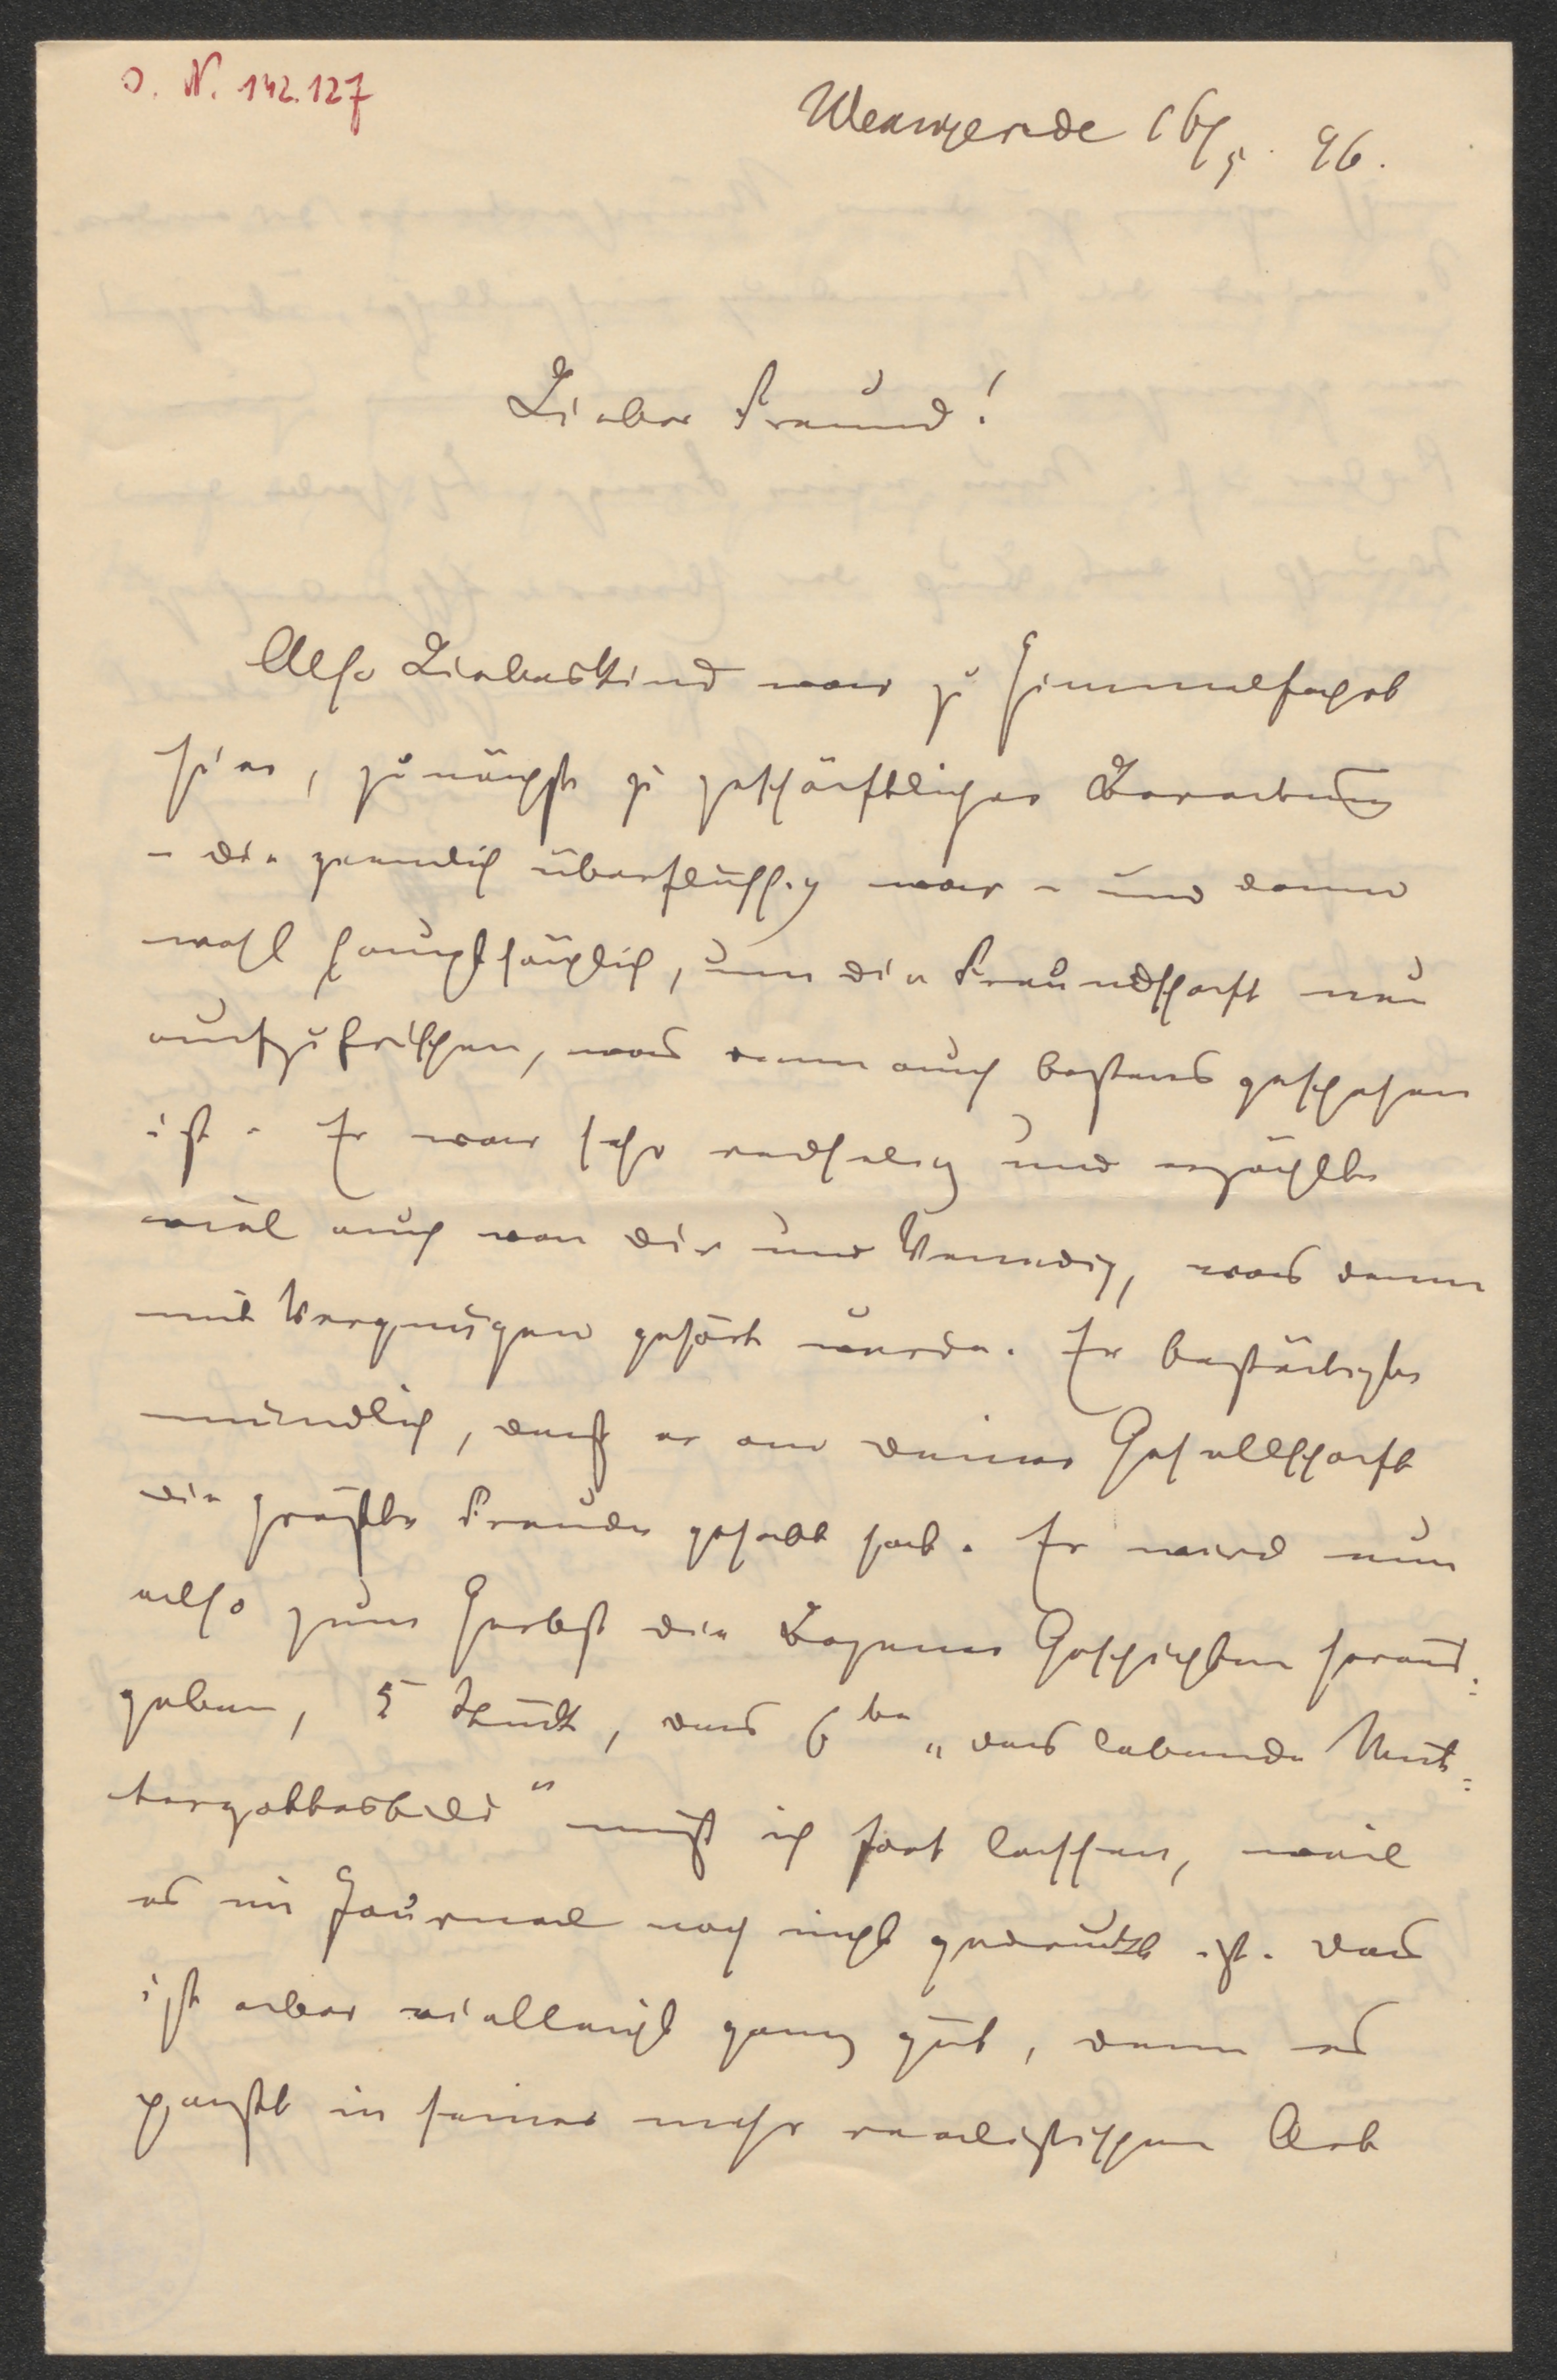 J. N. 142.127
Wernigerode 16/5. 96.
Lieber Freund!
Also Liebeskind war zu Himmelfahrt
hier, zunächst zu geschäftlicher Beratung
– die ziemlich überflüssig war – und dann
wohl hauptsächlich, um die Freundschaft neu
aufzufrischen, was denn auch bestens geschehen
ist. Er war sehr redselig und erzählte
viel auch von dir und Venedig, was denn
mit Vergnügen gehört wurde. Er bestätigte
mündlich, daß er an deiner Gesellschaft
die größte Freude gehabt hat. Er wird nun
also zum Herbst die Bozener Geschichten heraus-
geben, 5 Stück, das 6te „das lebende Mut-
tergottesbild“ muß ich fort lassen, weil
es im Journal noch nicht gedruckt ist. Das
ist aber vielleicht ganz gut, denn es
paßt in seiner mehr realistischen Art